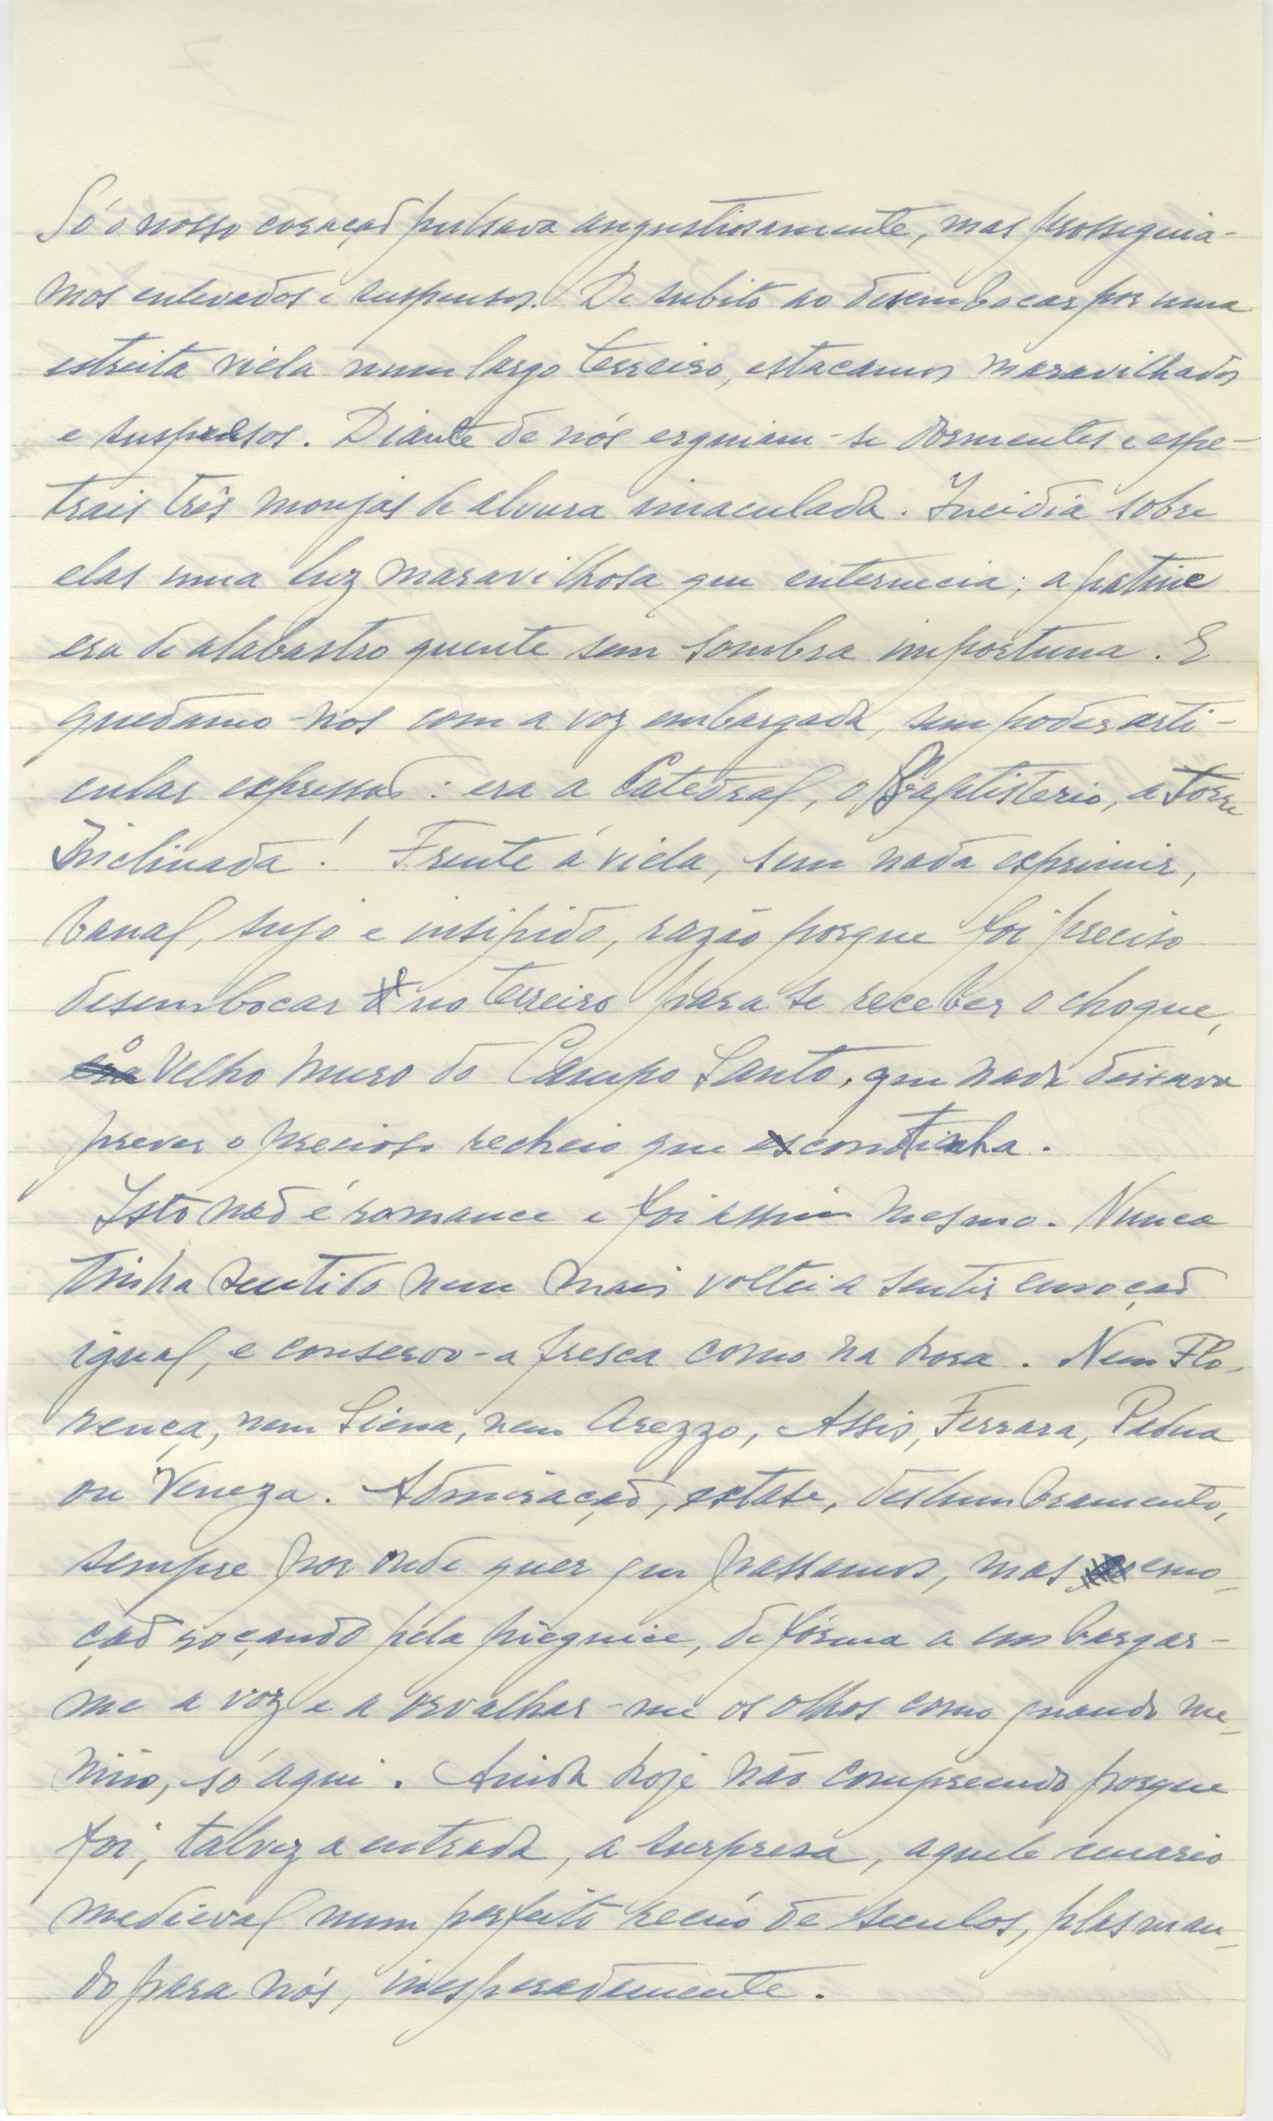 Só o nosso coração pulsava angustiosamente, mas prosseguia-
mos enlevados e suspensos. De subito ao desembocar por uma
estreita viela num largo terreiro, estacamos maravilhados
e suspensos. Diante de nós erguiam-se dormentes e espe-
trais três monjas de alvura imaculada. Incidia sobre
elas uma luz maravilhosa que enternecia; a patine
era de alabastro quente sem sombra importuna. E
quedamo-nos com a voz embargada, sem poder arti-
cular expressão: era a Catedral, o Baptisterio, a Torre
Inclinada! Frente á viela, sem nada exprimir,
banal, sujo e insipido, razão porque foi preciso
desembocar no terreiro para se receber o choque,
o velho muro do Campo Santo, que nada deixava
prever o precioso recheio que continha.
Isto não é romance e foi assim mesmo. Nunca
tinha sentido nem mais voltei a sentir emoção
igual, e conservo-a fresca como na hora. Nem Flo-
rença, nem Siena, nem Arezzo, Assis, Ferrara, Padua
ou Veneza. Admiração, extase, deslumbramento,
sempre por onde quer que passamos, mas emo-
ção roçando pela pieguice, de fórma a embargar-
me a voz e a orvalhar-me os olhos como quando me-
nino, só aqui. Ainda hoje não compreendo porque
foi; talvez a entrada, a surpresa, aquele cenario
medieval num perfeito recúo de seculos, plasman-
do para nós, inesperadamente.